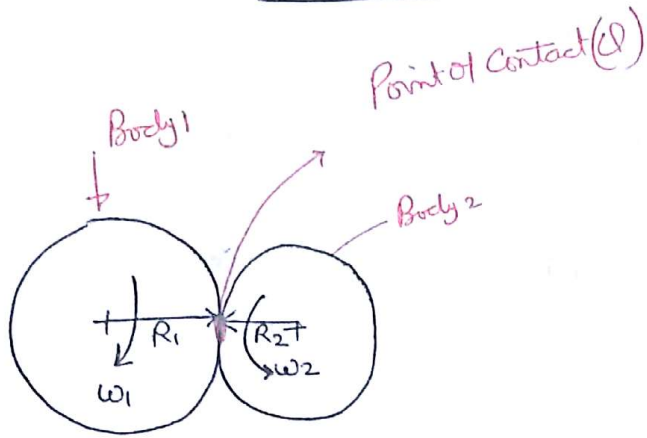 Point of Contact (Q)
Body 1
Body 2
R1
R2
ω1
ω2